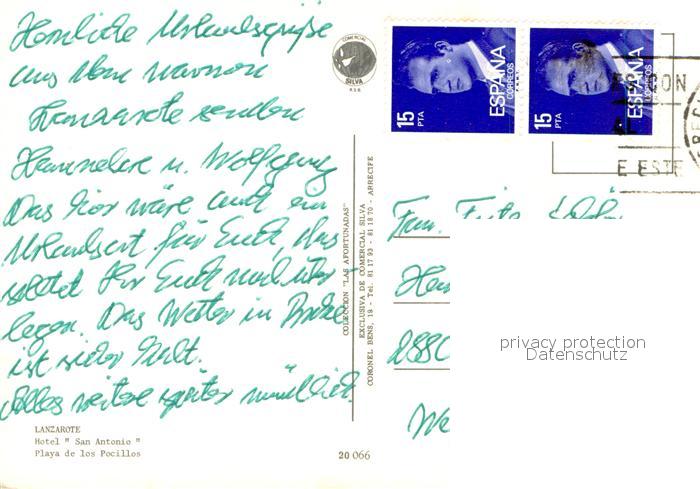 Herzliche Urlaubsgrüße
aus dem warmen
Lanzarote senden
Hannelore u. Wolfgang
Das hier wäre auch ein
Urlaubsort für Euch, das
solltet Ihr Euch mal über-
legen. Das Wetter in
ist sicher kalt.
Alles weitere später mündlich.
LANZAROTE
Hotel " San Antonio "
Playa de los Pocillos
20 066
COMERCIAL
SILVA
COLECCION "LAS AFORTUNADAS"
EXCLUSIVA DE COMERCIAL SILVA
CORONEL BENS, 19 - Tel. 81 17 93 - 81 18 70 - ARRECIFE
15 PTA
ESPAÑA
CORREOS
15 PTA
ESPAÑA
CORREOS
E ESTE
Fam. Fritz
288
We
privacy protection
Datenschutz